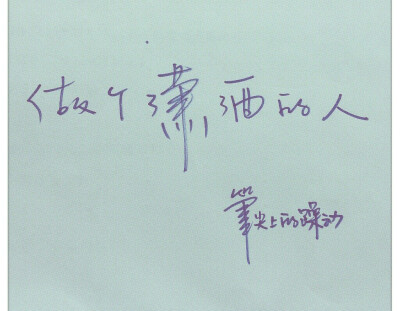 做个潇洒的人
筆尖上的躁动